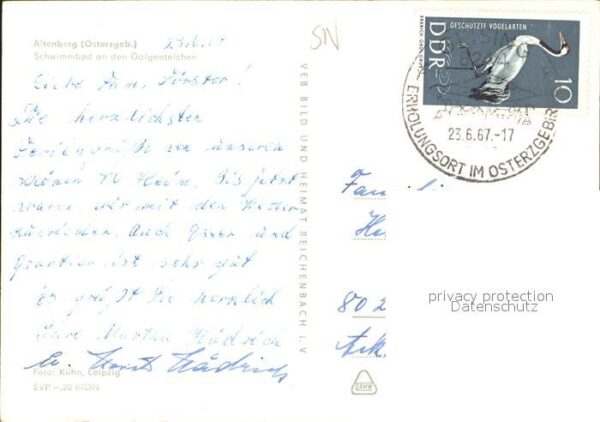 Altenberg (Osterzgeb.)
Schwimmbad an den Galgenteichen
SN
Liebe Fam. Förster!
Die herzlichsten
Feriengrüße von unseren
schönen
Heim. Bis jetzt
waren wir mit den Wetter
zufrieden. Auch Essen und
Quartier ist sehr gut
Es grüßt Sie herzlich
Ihre Martha Hädrich
u. Horst Hädrich
Foto: Kühn, Leipzig
EVP –,20 MDN
VEB BILD UND HEIMAT REICHENBACH I. V
GESCHÜTZTE VOGELARTEN
DDR
10
23.6.67.-17
ERHOLUNGSORT IM OSTERZGEBIR
Fam
He
802
privacy protection
Datenschutz